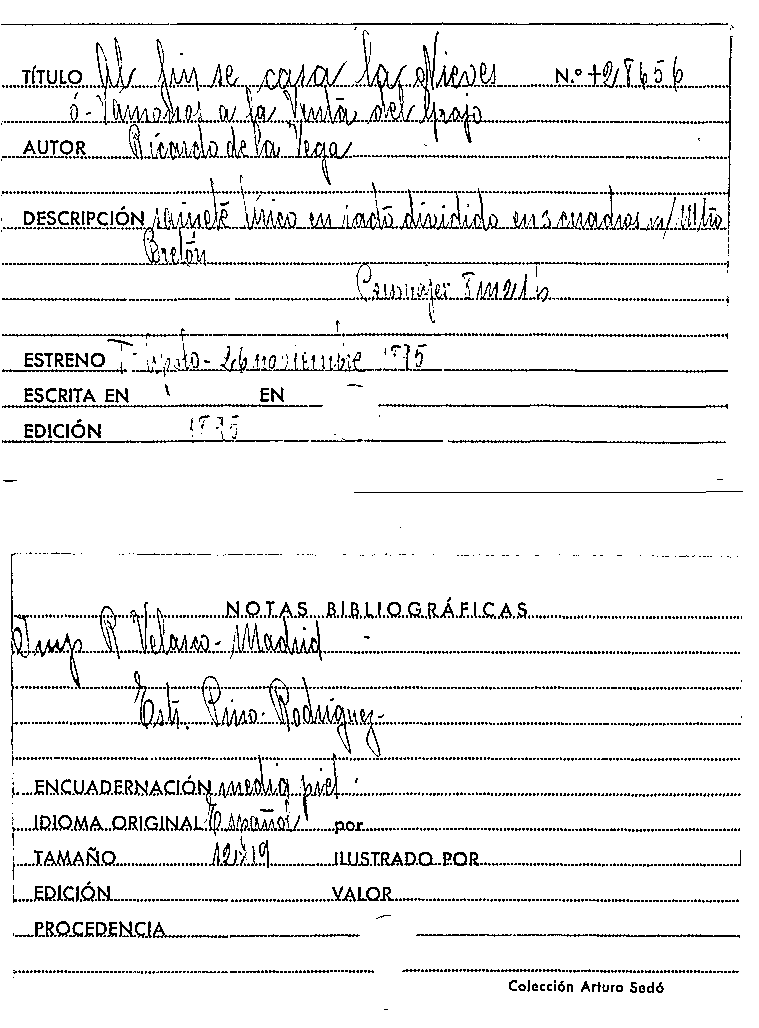 TÍTULO Al fin se casa la Nieves N.º +28656
ó - Vamonos a la Venta del Grajo
AUTOR Ricardo de la Vega
DESCRIPCIÓN sainete lírico en 1 acto dividido en 3 cuadros m/ Mtro
Bretón
Personajes
ESTRENO T- Apolo - 26 noviembre 1895
ESCRITA EN EN
EDICIÓN 1895
NOTAS BIBLIOGRÁFICAS
Imp R Velasco - Madrid
Estr. Pino - Rodriguez -
ENCUADERNACIÓN media piel
IDIOMA ORIGINAL Español por
TAMAÑO 12x19 ILUSTRADO POR
EDICIÓN VALOR
PROCEDENCIA
Colección Arturo Sedó